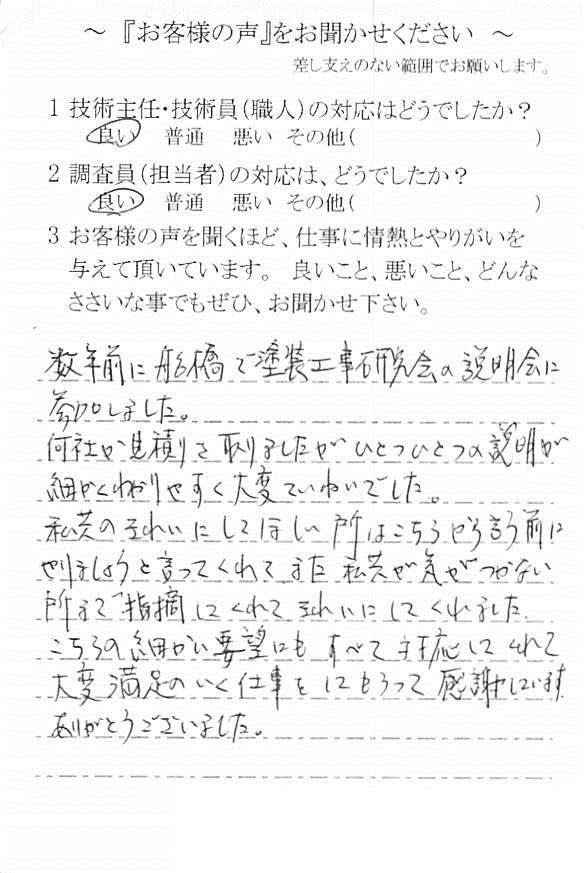 ～『お客様の声』をお聞かせください ～
差し支えのない範囲でお願いします。
1 技術主任・技術員(職人)の対応はどうでしたか?
良い 普通 悪い その他( )
2 調査員(担当者)の対応は、どうでしたか?
良い 普通 悪い その他( )
3 お客様の声を聞くほど、仕事に情熱とやりがいを
与えて頂いています。 良いこと、悪いこと、どんな
ささいな事でもぜひ、お聞かせ下さい。
数年前に船橋で塗装工事研究会の説明会に
参加しました。
何社か見積りを取りましたがひとつひとつの説明が
細かくわかりやすく大変ていねいでした。
私共のきれいにしてほしい所はこちらから言う前に
やりましょうと言ってくれてまた私共が気がつかない
所まで指摘してくれてきれいにしてくれました.
こちらの細かい要望にもすべて対応してくれて
大変満足のいく仕事をしてもらって感謝しています
ありがとうございました。